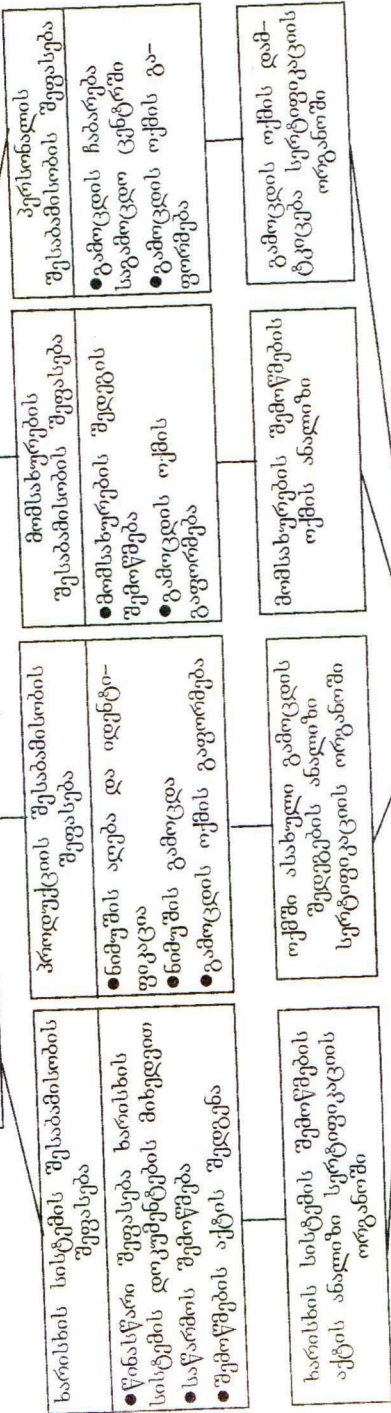 ხარისხის სისტემის შესაბამისობის
შეფასება
●წინასწარი შეფასება ხარისხის
სისტემის დოკუმენტების მიხედვით
●საწარმოს შემოწმება
●შემოწმების აქტის შედგენა
ხარისხის სისტემის შემოწმების
აქტის ანალიზი სერტიფიკაციის
ორგანოში
პროდუქციის შესაბამისობის
შეფასება
●ნიმუშის აღება და იდენტი-
ფიკაცია
●ნიმუშის გამოცდა
●გამოცდის ოქმის გაფორმება
ოქმში ასახული გამოცდის
შედეგების ანალიზი
სერტიფიკაციის ორგანოში
მომსახურების
შესაბამისობის შეფასება
●მომსახურების შედეგის
შემოწმება
●გამოცდის ოქმის
გაფორმება
მომსახურების შემოწმების
ოქმის ანალიზი
პერსონალის
შესაბამისობის შეფასება
●გამოცდის ჩაბარება
საგამოცდო ცენტრში
●გამოცდის ოქმის გა-
ფორმება
გამოცდის ოქმის დამ-
ტკიცება სერტიფიკაციის
ორგანოში